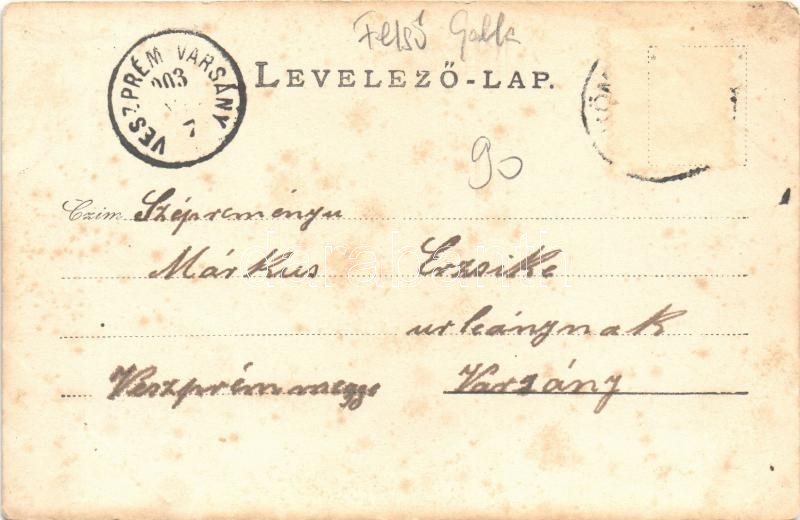 Felső Galla
VESZPRÉM VARSÁNY
903
7
LEVELEZŐ-LAP.
90
Czim Szépreményu
Márkus Erzsike
urleánynak
Veszprém megye Varsány